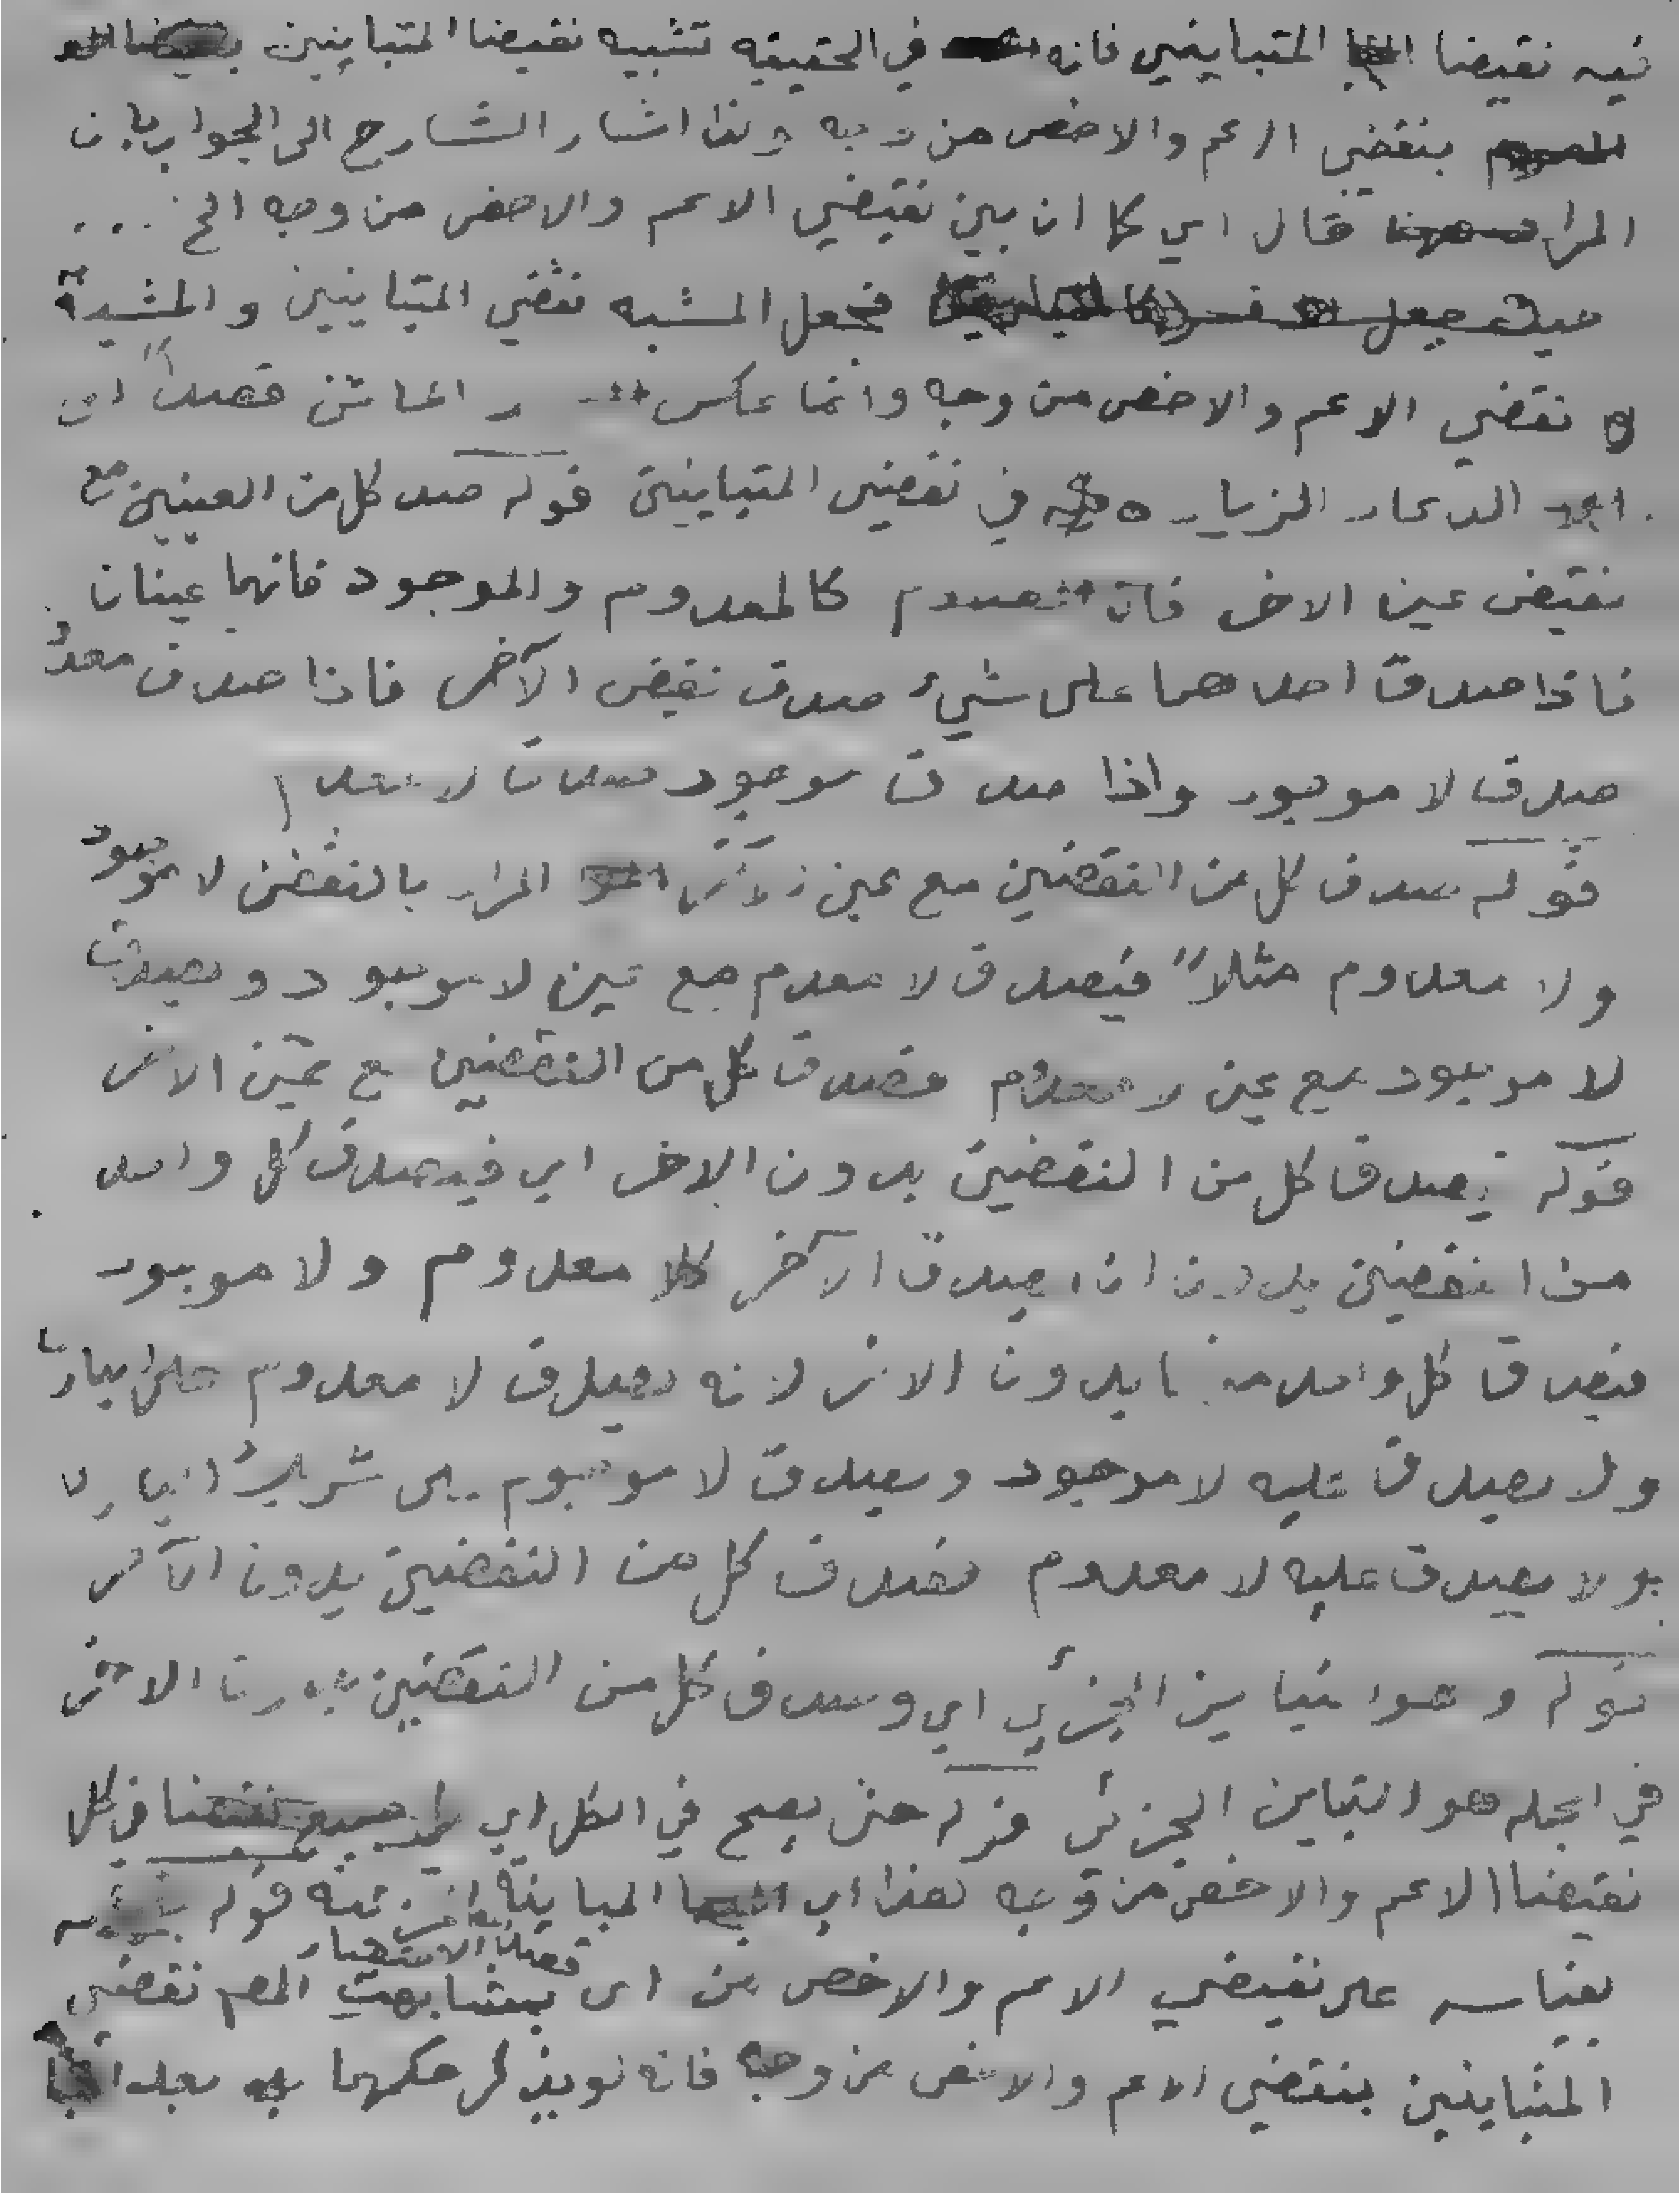 فيه نقيضا المتباينين فانه في الحقيقه تشبيه نقيضا المتباينين
بنقضي الاعم والاخص من وجه ولذا اشار الشارح الى الجواب بان
المراد قال اي كما ان بين نقيضي الاعم والاخص من وجه الخ ...
حيث جعل فجعل المشبه نقضي المتباينين والمشبه
به نقضي الاعم والاخص من وجه وانما عكس قصدا
في نقضي المتباينين قوله صدق كل من العينين مع
نقيض عين الاخر فان كالمعدوم والموجود فانهما عينان
فاذا صدق احدهما على شيء صدق نقيض الآخر فاذا صدق معدوم
صدق لا موجود واذا صدق موجود صدق لا معدوم
قوله صدق كل من النقضين مع عين الآخر المراد بالنقضين لا موجود
ولا معدوم مثلاً فيصدق لا معدم مع عين لا موجود ويصدق
لا موجود مع عين لا معدوم فصدق كل من النقضين مع عين الاخر
قوله يصدق كل من النقضين بدون الاخر اي فيصدق كل واحد
من النقضين بدون ان يصدق الآخر كلا معدوم ولا موجود
فيصدق كل واحد منهما بدون الاخر لانه يصدق لا معدوم على
ولا يصدق عليه لا موجود ويصدق لا موجوم على شريك الباري
ولا يصدق عليه لا معدوم فصدق كل من النقضين بدون الآخر
قوله وهو التباين الجزئي اي وصدق كل من النقضين بدون الاخر
في الجمله هو التباين الجزئي قوله حتى يصح في الكل اي في كل
نقيضا الاعم والاخص من وجه هذا اي المباينة الجزئيه قوله
بقياسه على نقيضي الاعم والاخص من اي بمشابهت قصدا الاختصار المص نقضي
المتباينين بنقضي الاعم والاخص من وجه فانه لو يذكر حكمهما بعد